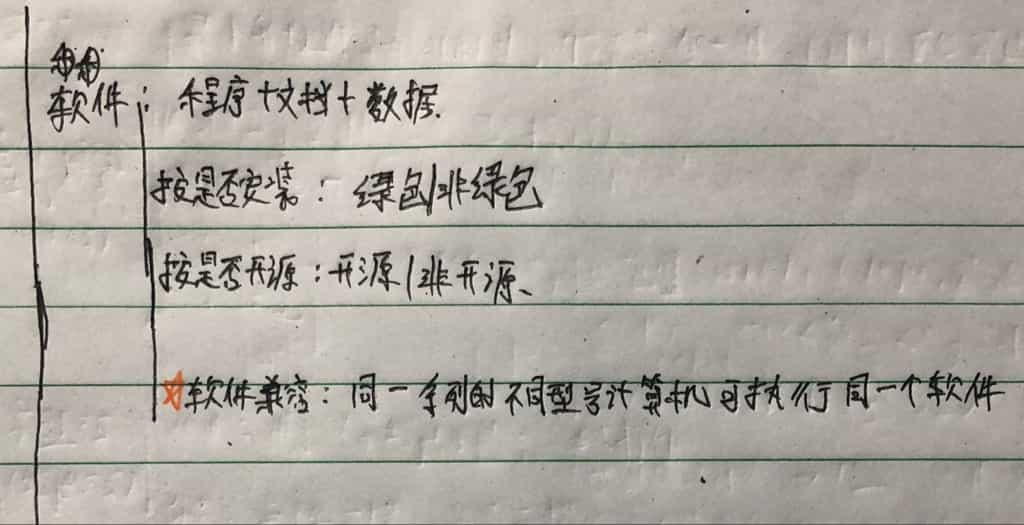 软件：程序+文档+数据.
按是否安装：绿色/非绿色
按是否开源：开源/非开源、
☆软件兼容：同一系列的不同型号计算机可执行同一个软件